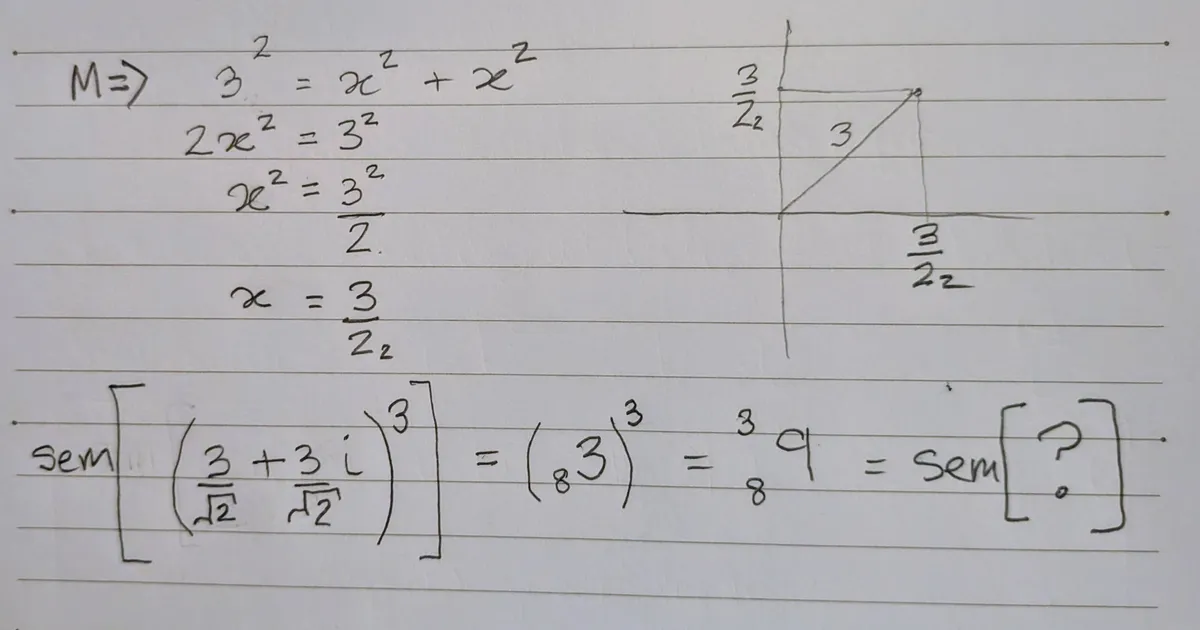 M⇒ 3² = x² + x²
2x² = 3²
x² = 3²/2
x = 3/2₂
3/2₂
3
3/2₂
sem[(3/√2 + 3/√2 i)³] = (₈3)³ = ³₈9 = sem[?]